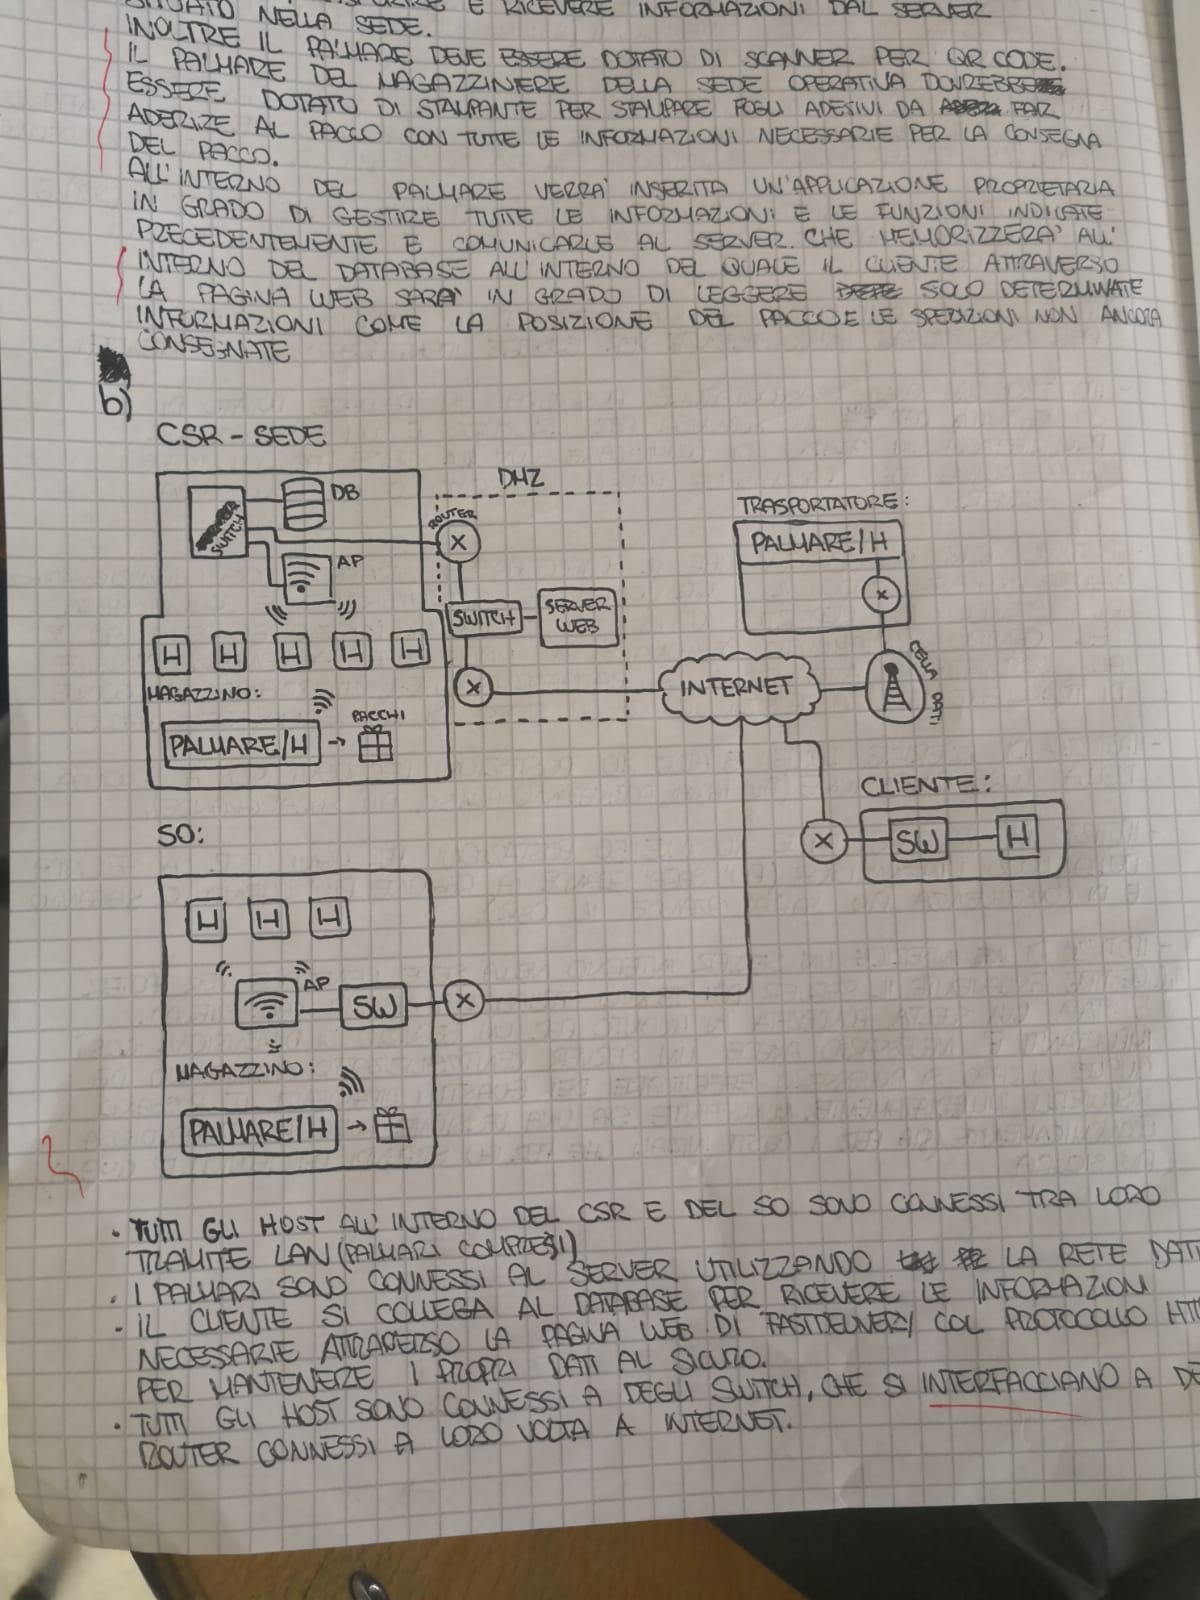 E RICEVERE INFORMAZIONI DAL SERVER
SITUATO NELLA SEDE.
INOLTRE IL PALMARE DEVE ESSERE DOTATO DI SCANNER PER QR CODE.
IL PALMARE DEL MAGAZZINIERE DELLA SEDE OPERATIVA DOVREBBE
ESSERE DOTATO DI STAMPANTE PER STAMPARE FOGLI ADESIVI DA FAR
ADERIRE AL PACCO CON TUTTE LE INFORMAZIONI NECESSARIE PER LA CONSEGNA
DEL PACCO.
ALL'INTERNO DEL PALMARE VERRA' INSERITA UN'APPLICAZIONE PROPRIETARIA
IN GRADO DI GESTIRE TUTTE LE INFORMAZIONI E LE FUNZIONI INDICATE
PRECEDENTEMENTE E COMUNICARLE AL SERVER CHE MEMORIZZERA' ALL'
INTERNO DEL DATABASE ALL'INTERNO DEL QUALE IL CLIENTE ATTRAVERSO
LA PAGINA WEB SARA' IN GRADO DI LEGGERE SOLO DETERMINATE
INFORMAZIONI COME LA POSIZIONE DEL PACCO E LE SPEDIZIONI NON ANCORA
CONSEGNATE
b)
CSR - SEDE
DMZ
DB
SWITCH
ROUTER
AP
TRASPORTATORE:
PALMARE/H
SWITCH
SERVER
WEB
H H H H H
MAGAZZINO:
PACCHI
PALMARE/H
INTERNET
CELLA DATI
CLIENTE:
SW
H
SO:
H H H
AP
SW
MAGAZZINO:
PALMARE/H
• TUTTI GLI HOST ALL'INTERNO DEL CSR E DEL SO SONO CONNESSI TRA LORO
TRAMITE LAN (PALMARI COMPRESI)
• I PALMARI SONO CONNESSI AL SERVER UTILIZZANDO LA RETE DATI
• IL CLIENTE SI COLLEGA AL DATABASE PER RICEVERE LE INFORMAZIONI
NECESSARIE ATTRAVERSO LA PAGINA WEB DI FASTDELIVERY COL PROTOCOLLO
PER MANTENERE I PROPRI DATI AL SICURO.
• TUTTI GLI HOST SONO CONNESSI A DEGLI SWITCH, CHE SI INTERFACCIANO A
ROUTER CONNESSI A LORO VOLTA A INTERNET.